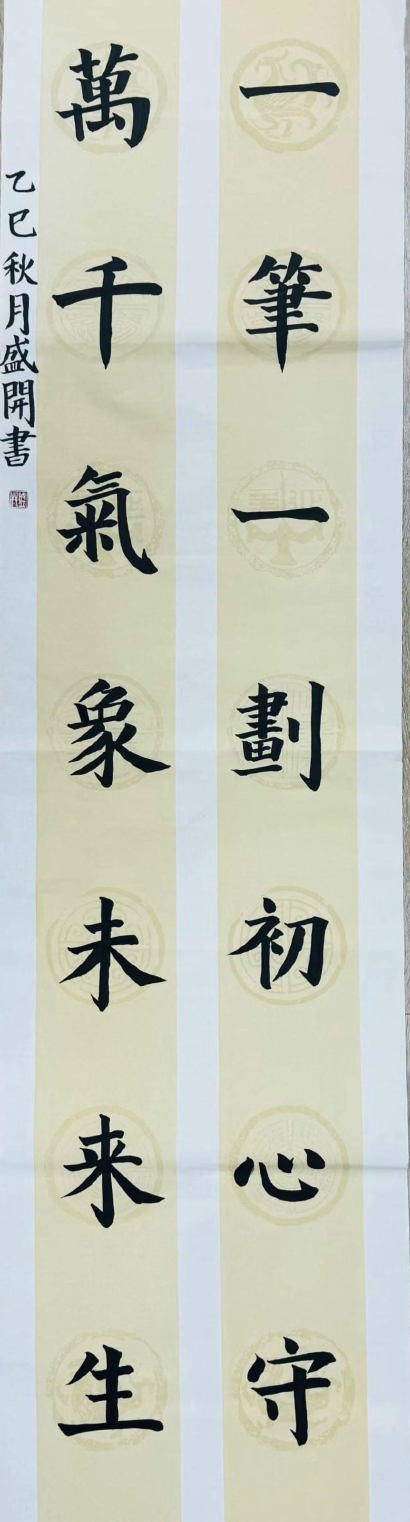 一筆一劃初心守
萬千氣象未来生
乙巳秋月盛開書